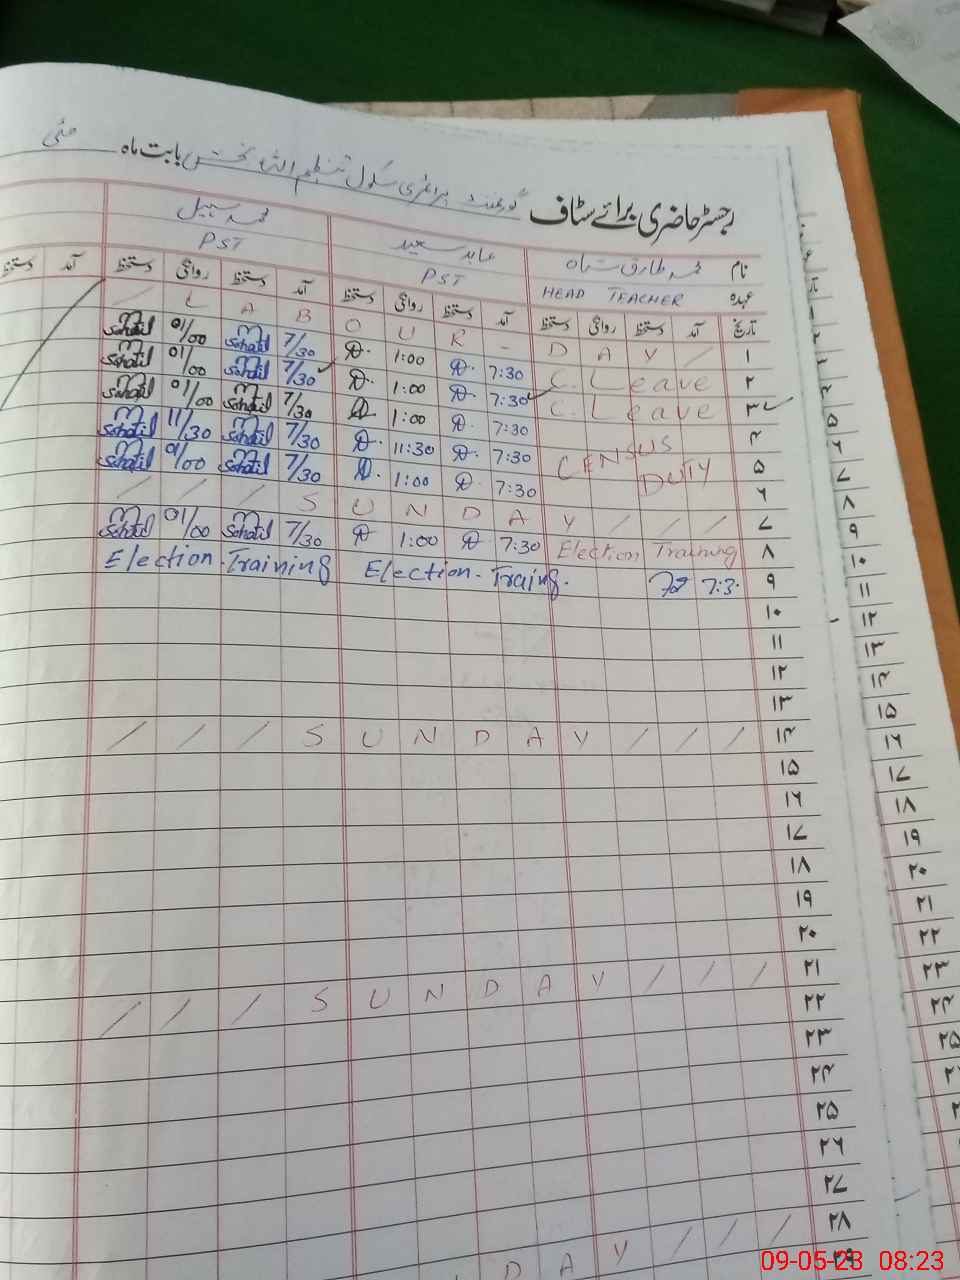 رجسٹر حاضری برائے سٹاف گورنمنٹ پرائمری سکول تنظیم اللہ بخش بابت ماہ مئی
نام محمد طارق شاہ عابد سعید محمد سہیل
عہدہ HEAD TEACHER PST PST
تاریخ آمد دستخط روانگی دستخط آمد دستخط روانگی دستخط آمد دستخط روانگی دستخط آمد دستخط
۱ / / / L A B O U R - D A Y /
۲ C. Leave 7:30 1:00 7/30 Sohail 01/00 Sohail
۳ C. Leave 7:30 1:00 7/30 Sohail 01/00 Sohail
۴ 7:30 1:00 7/30 Sohail 01/00 Sohail
۵ CENSUS DUTY 7:30 11:30 7/30 Sohail 11/30 Sohail
۶ 7:30 1:00 7/30 Sohail 01/00 Sohail
۷ / / / S U N D A Y / / /
۸ Election Training 7:30 1:00 7/30 Sohail 01/00 Sohail
۹ 7:3 Election-Traing. Election-Training
۱۰
۱۱
۱۲
۱۳
۱۴ / / / S U N D A Y / / /
۱۵
۱۶
۱۷
۱۸
۱۹
۲۰
۲۱ / / / S U N D A Y / / /
۲۲
۲۳
۲۴
۲۵
۲۶
۲۷
۲۸ D A Y / / /
۲۹
۵
۶
۷
۸
۹
۱۰
۱۱
۱۲
۱۳
۱۴
۱۵
۱۶
۱۷
۱۸
۱۹
۲۰
۲۱
۲۲
۲۳
۲۴
۲۵
09-05-23 08:23